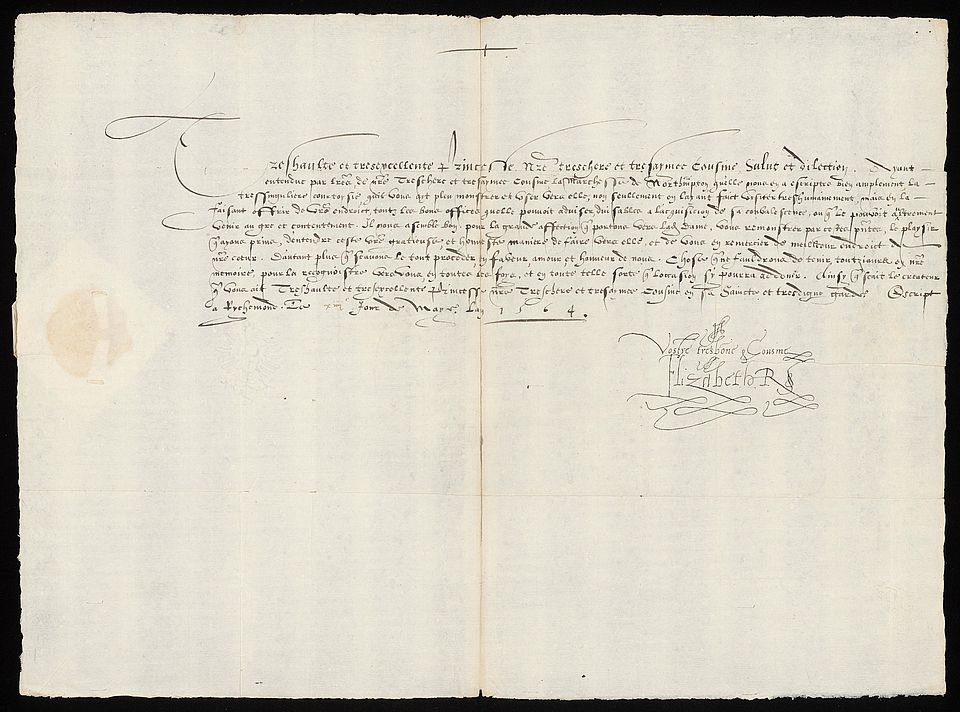 Treshaulte et tresexcellente Princesse nre treschere et tresaymee Cousine Salut et dilection. Ayant
entendue par lres de nre Treschere et tresaymee Cousine la Marchesse de Northampton qu'elle nous en a escriptes bien amplement la
tressinguliere courtoysie, qu'il vous ayt pleu monstrer et user vers elle, non seullement en layant faict visiter treshumainement, mais en la
faisant offrir de vre endroict, touts les bons offices quelle pouvoit adviser duisables a lacquisicion de sa convalescence, ou q le pouvoit aultrement
venir au gre et contentement. Il nous a semble bon, pour la grande affection q portons vers lad Dame, vous remonstrer par cestes pntes, le plaisir
q ayons prins, dentendre ceste vre gratieuse et honneste maniere de faire vers elle, et de vous en remercier de meilleur endroict de
nre coeur. Daultant plus q scavons le tout proceder en faveur amour et honneur de nous. Chose q ne fauldrons de tenir tousjours en nre
memoire, pour la recognoistre vers vous en toutes les foys, et en toute telle sorte q loccasion sy pourra advenir. Ainsy q scait le createur
q vous ait Treshaulte et tresexcellente Princesse nre Treschere et tresaymee Cousine en sa Saincte et tresdigne garde. Escript
a Rychemonde Le Jour de May Lan 1564.
Vostre tresbonne Cousine
Elizabeth R